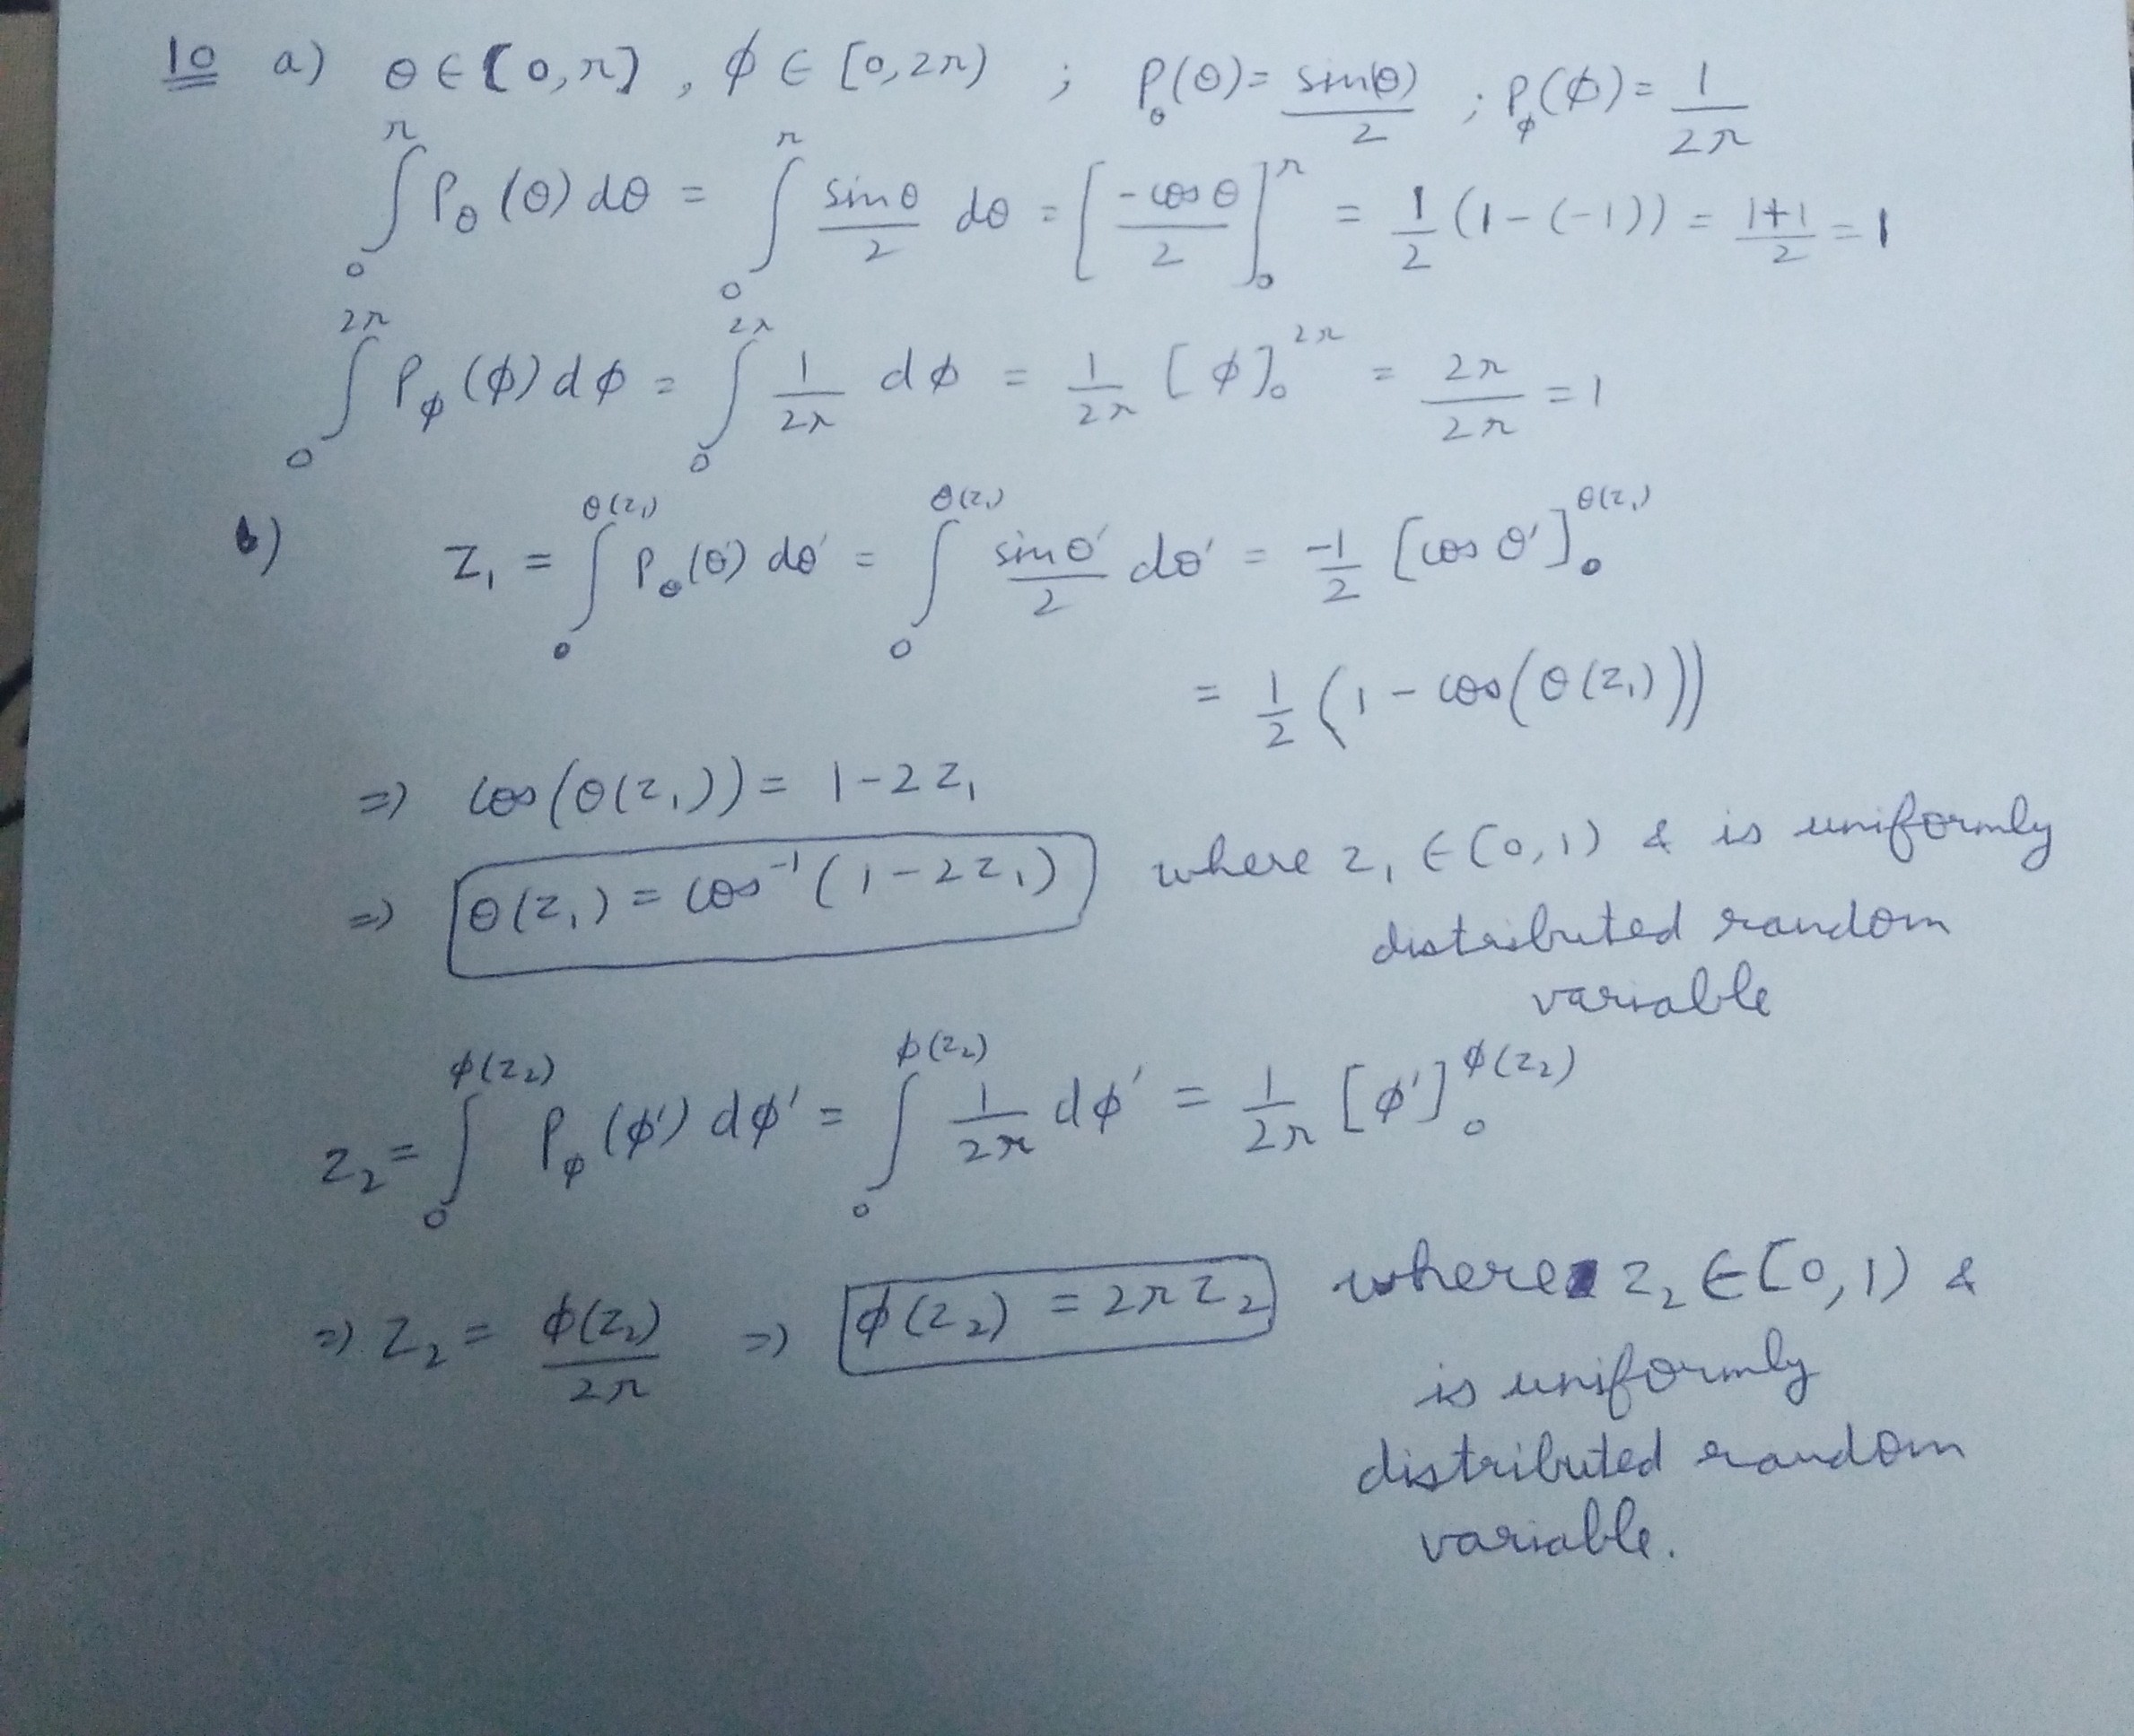 10 a) θ ∈ [0, π], ϕ ∈ [0, 2π) ; P_θ(θ) = sin(θ)/2 ; P_ϕ(ϕ) = 1/2π
∫_0^π P_θ(θ) dθ = ∫_0^π sinθ/2 dθ = [-cosθ/2]_0^π = 1/2 (1-(-1)) = 1+1/2 = 1
∫_0^2π P_ϕ(ϕ) dϕ = ∫_0^2π 1/2π dϕ = 1/2π [ϕ]_0^2π = 2π/2π = 1
b) z₁ = ∫_0^θ(z₁) P_θ(θ') dθ' = ∫_0^θ(z₁) sinθ'/2 dθ' = -1/2 [cos θ']_0^θ(z₁)
= 1/2 (1 - cos(θ(z₁)))
⇒ cos(θ(z₁)) = 1-2z₁
⇒ θ(z₁) = cos⁻¹(1-2z₁) where z₁ ∈ [0,1) & is uniformly
distributed random
variable
z₂ = ∫_0^ϕ(z₂) P_ϕ(ϕ') dϕ' = ∫_0^ϕ(z₂) 1/2π dϕ' = 1/2π [ϕ']_0^ϕ(z₂)
⇒ z₂ = ϕ(z₂)/2π ⇒ ϕ(z₂) = 2πz₂ where z₂ ∈ [0,1) &
is uniformly
distributed random
variable.